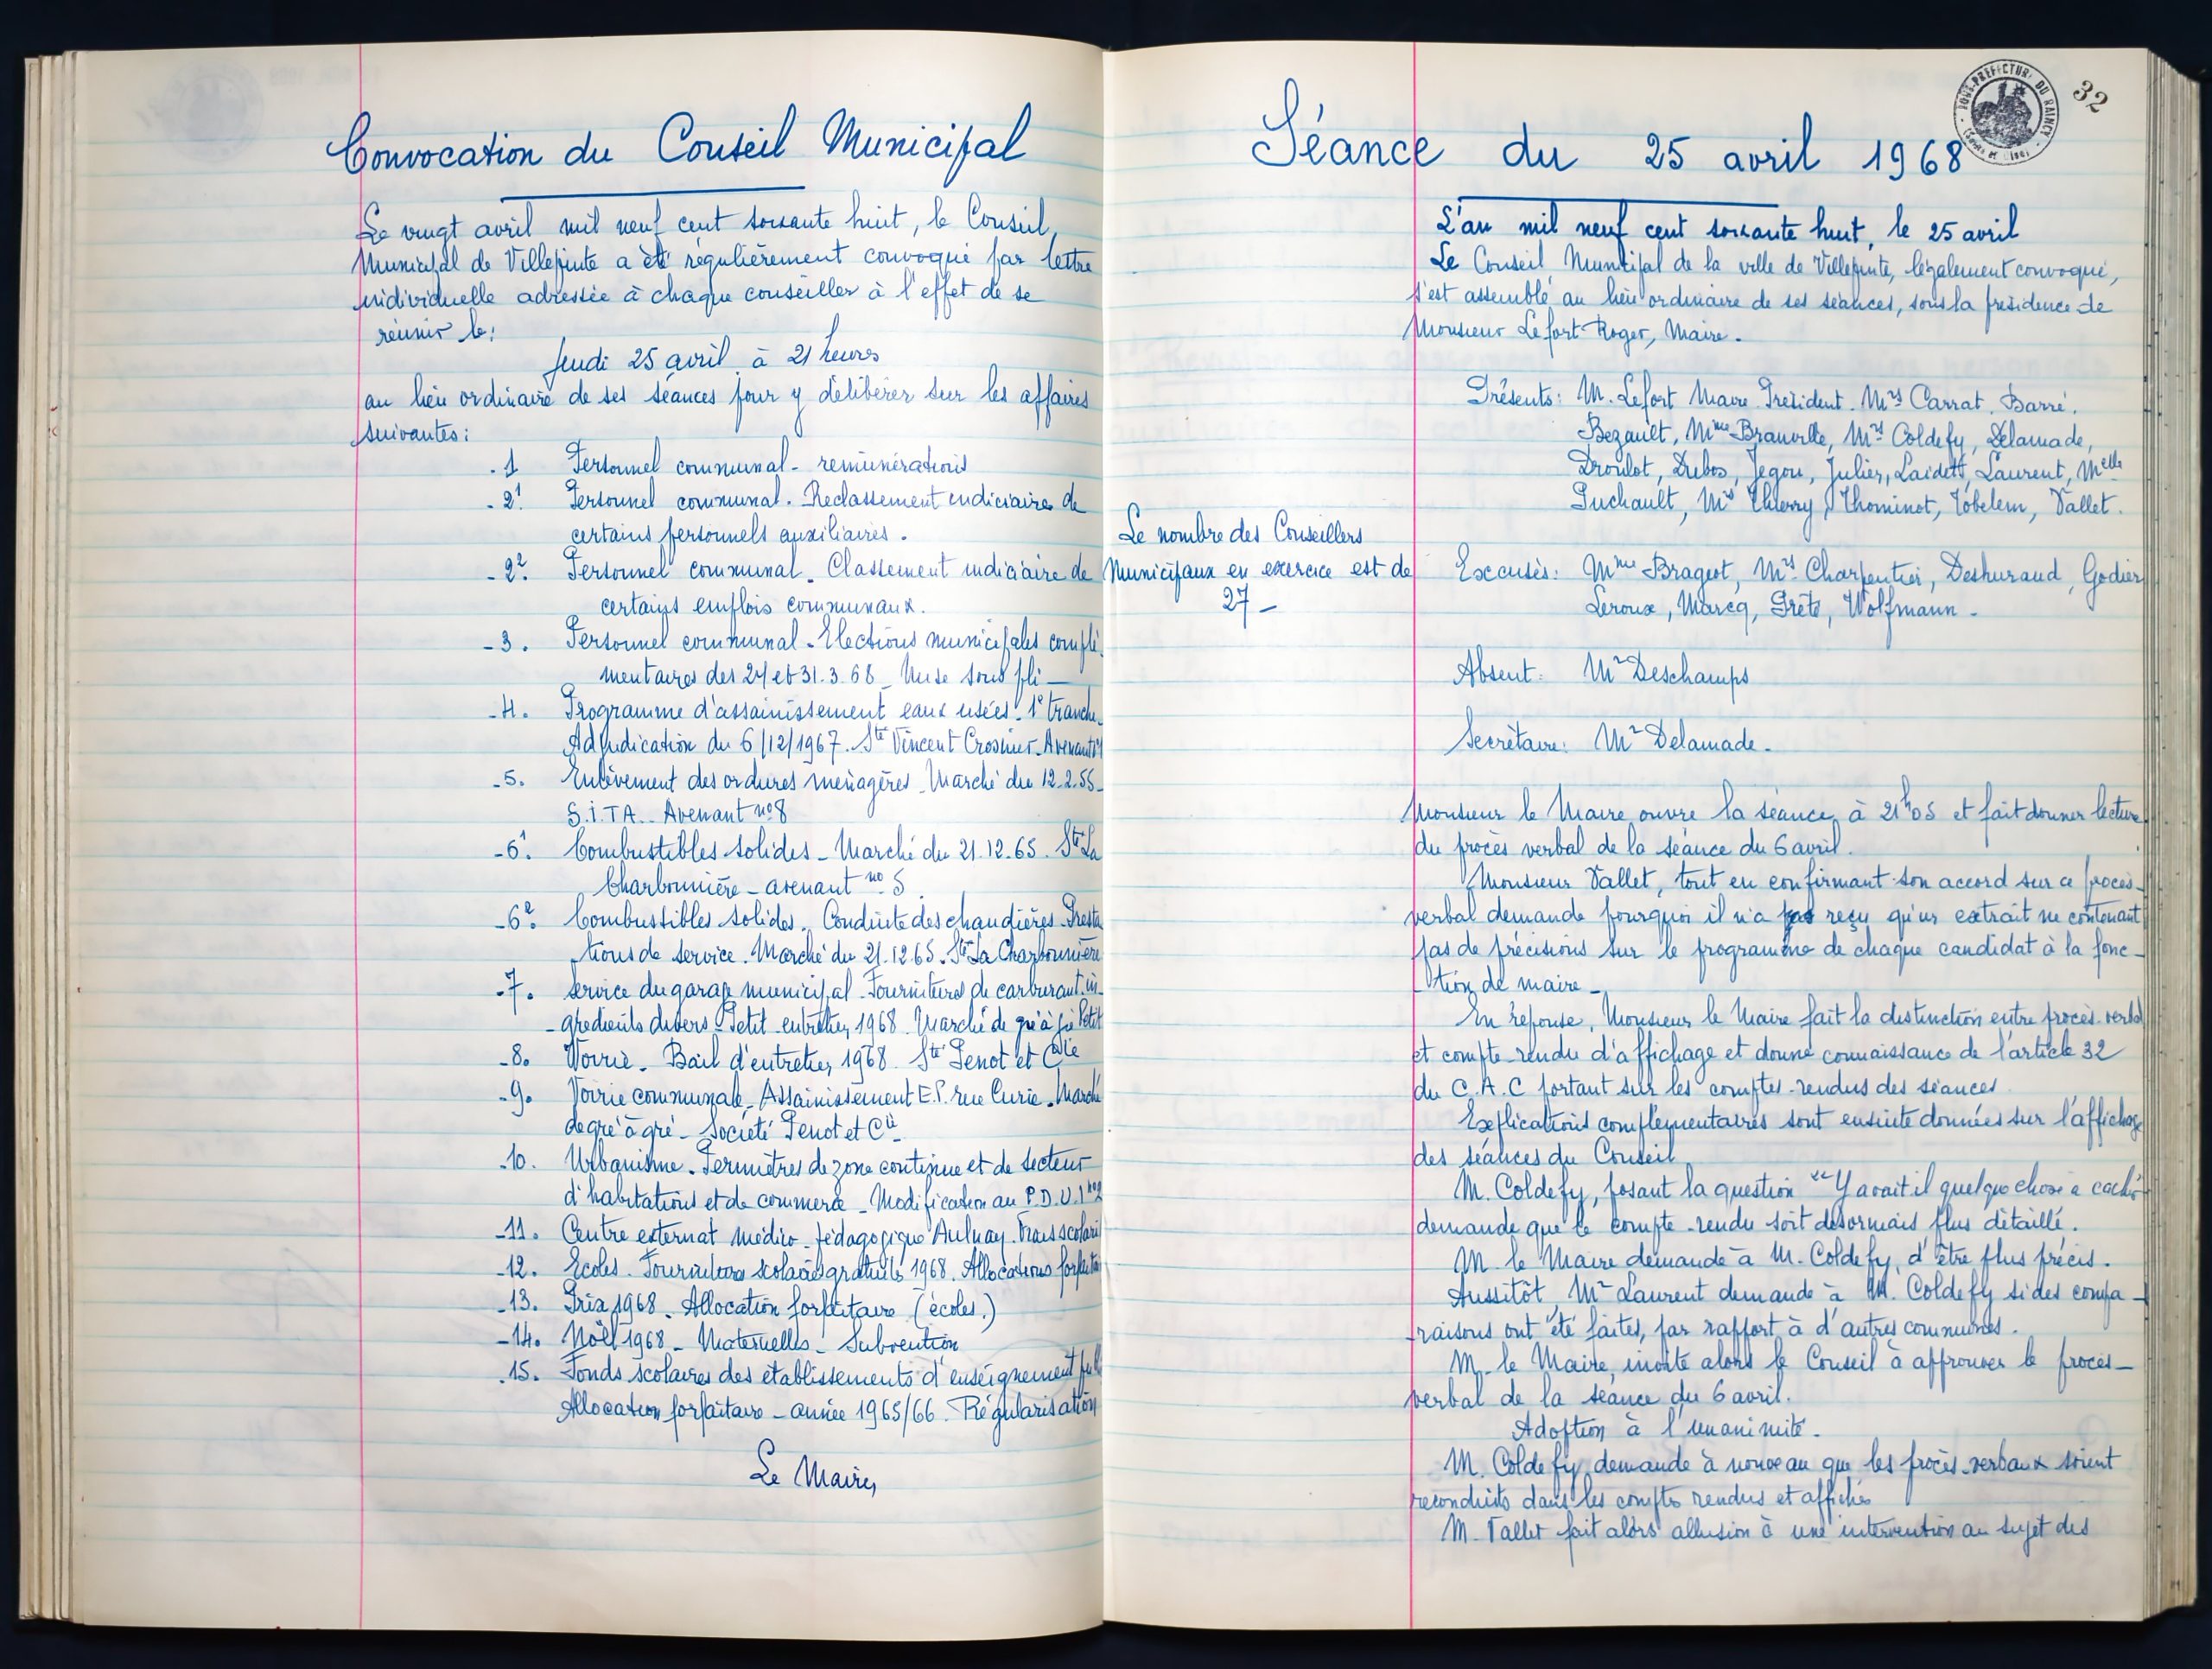 Convocation du Conseil Municipal
Le vingt avril mil neuf cent soixante huit, le Conseil
Municipal de Villepinte a été régulièrement convoqué par lettre
individuelle adressée à chaque conseiller à l'effet de se
réunir le:
Jeudi 25 avril à 21 heures
au lieu ordinaire de ses séances pour y délibérer sur les affaires
suivantes:
.1 Personnel communal - rémunérations
.2¹ Personnel communal. Reclassement indiciaire de
certains personnels auxiliaires.
-2². Personnel communal. Classement indiciaire de
certains emplois communaux.
-3. Personnel communal - Elections municipales complé
mentaires des 24 et 31.3.68 - Mise sous pli -
-4. Programme d'assainissement eaux usées. 1e tranche.
Adjudication du 6/12/1967. Sté Vincent Crosnier. Avenant n°1
-5. Enlèvement des ordures ménagères. Marché du 12.2.55-
S.I.T.A. - Avenant n°8
-6¹. Combustibles solides - Marché du 21.12.65. Sté La
Charbonnière - avenant n° 5
-6². Combustibles solides. Conduite des chaudières - Presta
tions de service. Marché du 21.12.65. Sté La Charbonnière
-7. Service du garage municipal - Fournitures de carburant - in-
- grédients divers - Petit entretien 1968. Marché de gré à gré Petit
-8. Voirie - Bail d'entretien 1968. Sté Penot et Cie
-9. Voirie communale - Assainissement E.P. rue Curie. Marché
de gré à gré - Société Penot et Cie
-10. Urbanisme. Périmètres de zone continue et de secteur
d'habitations et de commerce - Modification au P.D.U.I n°2
-11. Centre externat médico-pédagogique Aulnay. Frais scolari
-12. Ecoles. Fournitures scolaires gratuites 1968. Allocations forfaita
-13. Prix 1968. Allocation forfaitaire (écoles.)
-14. Noël 1968 - Maternelles - Subvention
.15. Fonds scolaires des établissements d'enseignement publ
Allocation forfaitaire - année 1965/66. Régularisation
Le Maire,
SOUS-PRÉFECTURE DU RAINCY
(Seine et Oise)
32
Séance du 25 avril 1968
L'an mil neuf cent soixante huit, le 25 avril
Le Conseil Municipal de la ville de Villepinte, légalement convoqué,
s'est assemblé au lieu ordinaire de ses séances, sous la présidence de
Monsieur Lefort Roger, Maire.
Présents: M. Lefort Maire Président. Mrs Carrat. Barré.
Bezault, Mme Branville, Mrs Coldefy, Delamade,
Droulot, Dubos, Jegou, Julier, Laidett, Laurent, Melle
Puchault, Mrs Thierry, Thominet, Tobelem, Vallet.
Le nombre des Conseillers
Municipaux en exercice est de
27 -
Excusés: Mme Brageot, Mrs Charpentier, Deshuraud, Godier
Leroux, Marcq, Prêté, Wolfmann -
Absent: Mr Deschamps
Secrétaire: Mr Delamade.
Monsieur le Maire ouvre la séance à 21h05 et fait donner lecture
du procès verbal de la séance du 6 avril.
Monsieur Vallet, tout en confirmant son accord sur ce procès-
verbal demande pourquoi il n'a pas reçu qu'un extrait ne contenant
pas de précisions sur le programme de chaque candidat à la fonc-
-tion de maire -
En réponse, Monsieur le Maire fait la distinction entre procès-verbal
et compte-rendu d'affichage et donne connaissance de l'article 32
du C.A.C portant sur les comptes-rendus des séances.
Explications complémentaires sont ensuite données sur l'affichage
des séances du Conseil
M. Coldefy, posant la question "Y avait il quelque chose à cacher
demande que le compte-rendu soit désormais plus détaillé.
M. le Maire demande à M. Coldefy, d'être plus précis.
Aussitôt, Mr Laurent demande à M. Coldefy si des compa-
-raisons ont été faites, par rapport à d'autres communes.
M. le Maire, invite alors le Conseil à approuver le procès-
verbal de la séance du 6 avril.
Adoption à l'unanimité.
M. Coldefy demande à nouveau que les procès-verbaux soient
reconduits dans les comptes rendus et affichés
M. Vallet fait alors allusion à une intervention au sujet des